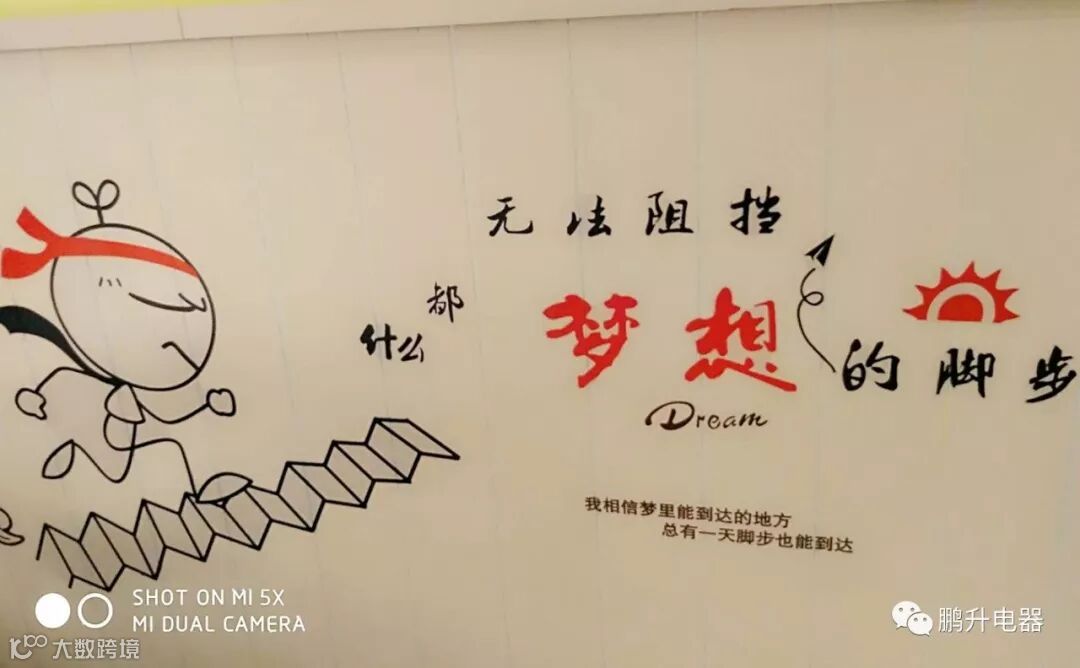 什么都
无法阻挡
梦想
的脚步
Dream
我相信梦里能到达的地方
总有一天脚步也能到达
SHOT ON MI 5X
MI DUAL CAMERA
鹏升电器
大数跨境